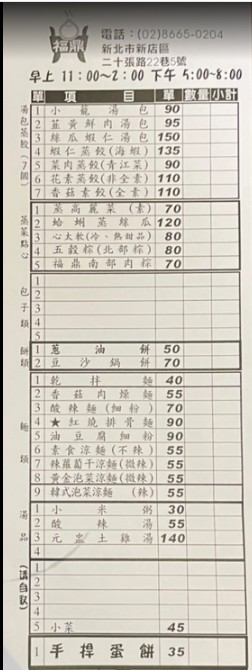 福鼎
電話：(02)8665-0204
新北市新店區
二十張路22巷5號
早上 11:00~2:00 下午 5:00~8:00
單 項目 單 數量 小計
湯包蒸餃(7個)
1 小籠湯包 90
2 韮黃鮮肉湯包 95
3 絲瓜蝦仁湯包 150
4 蝦仁蒸餃(海蝦) 135
5 菜肉蒸餃(青江菜) 90
6 花素蒸餃(非全素) 110
7 香菇素餃(全素) 110
蒸菜點心
1 蒸高麗菜(素) 70
2 蛤蜊蒸絲瓜 120
3 心太軟(冷、熱甜品) 80
4 五穀粽(北部粽) 80
5 福鼎南部肉粽 70
包子類
1
2
3
4
5
餅類
1 蔥油餅 50
2 豆沙鍋餅 70
麵類
1 乾拌麵 40
2 香菇肉燥麵 55
3 酸辣麵(細粉) 70
4 ★紅燒排骨麵 90
5 油豆腐細粉 90
6 素食涼麵(不辣) 55
7 辣蘿蔔干涼麵(微辣) 55
8 黃金泡菜涼麵(微辣) 55
9 韓式泡菜涼麵(辣) 55
湯品
1 小米粥 30
2 酸辣湯 55
3 元盅土雞湯 140
(請自取)
1
2
3
4
5 小菜 45
1 手桿蛋餅 35